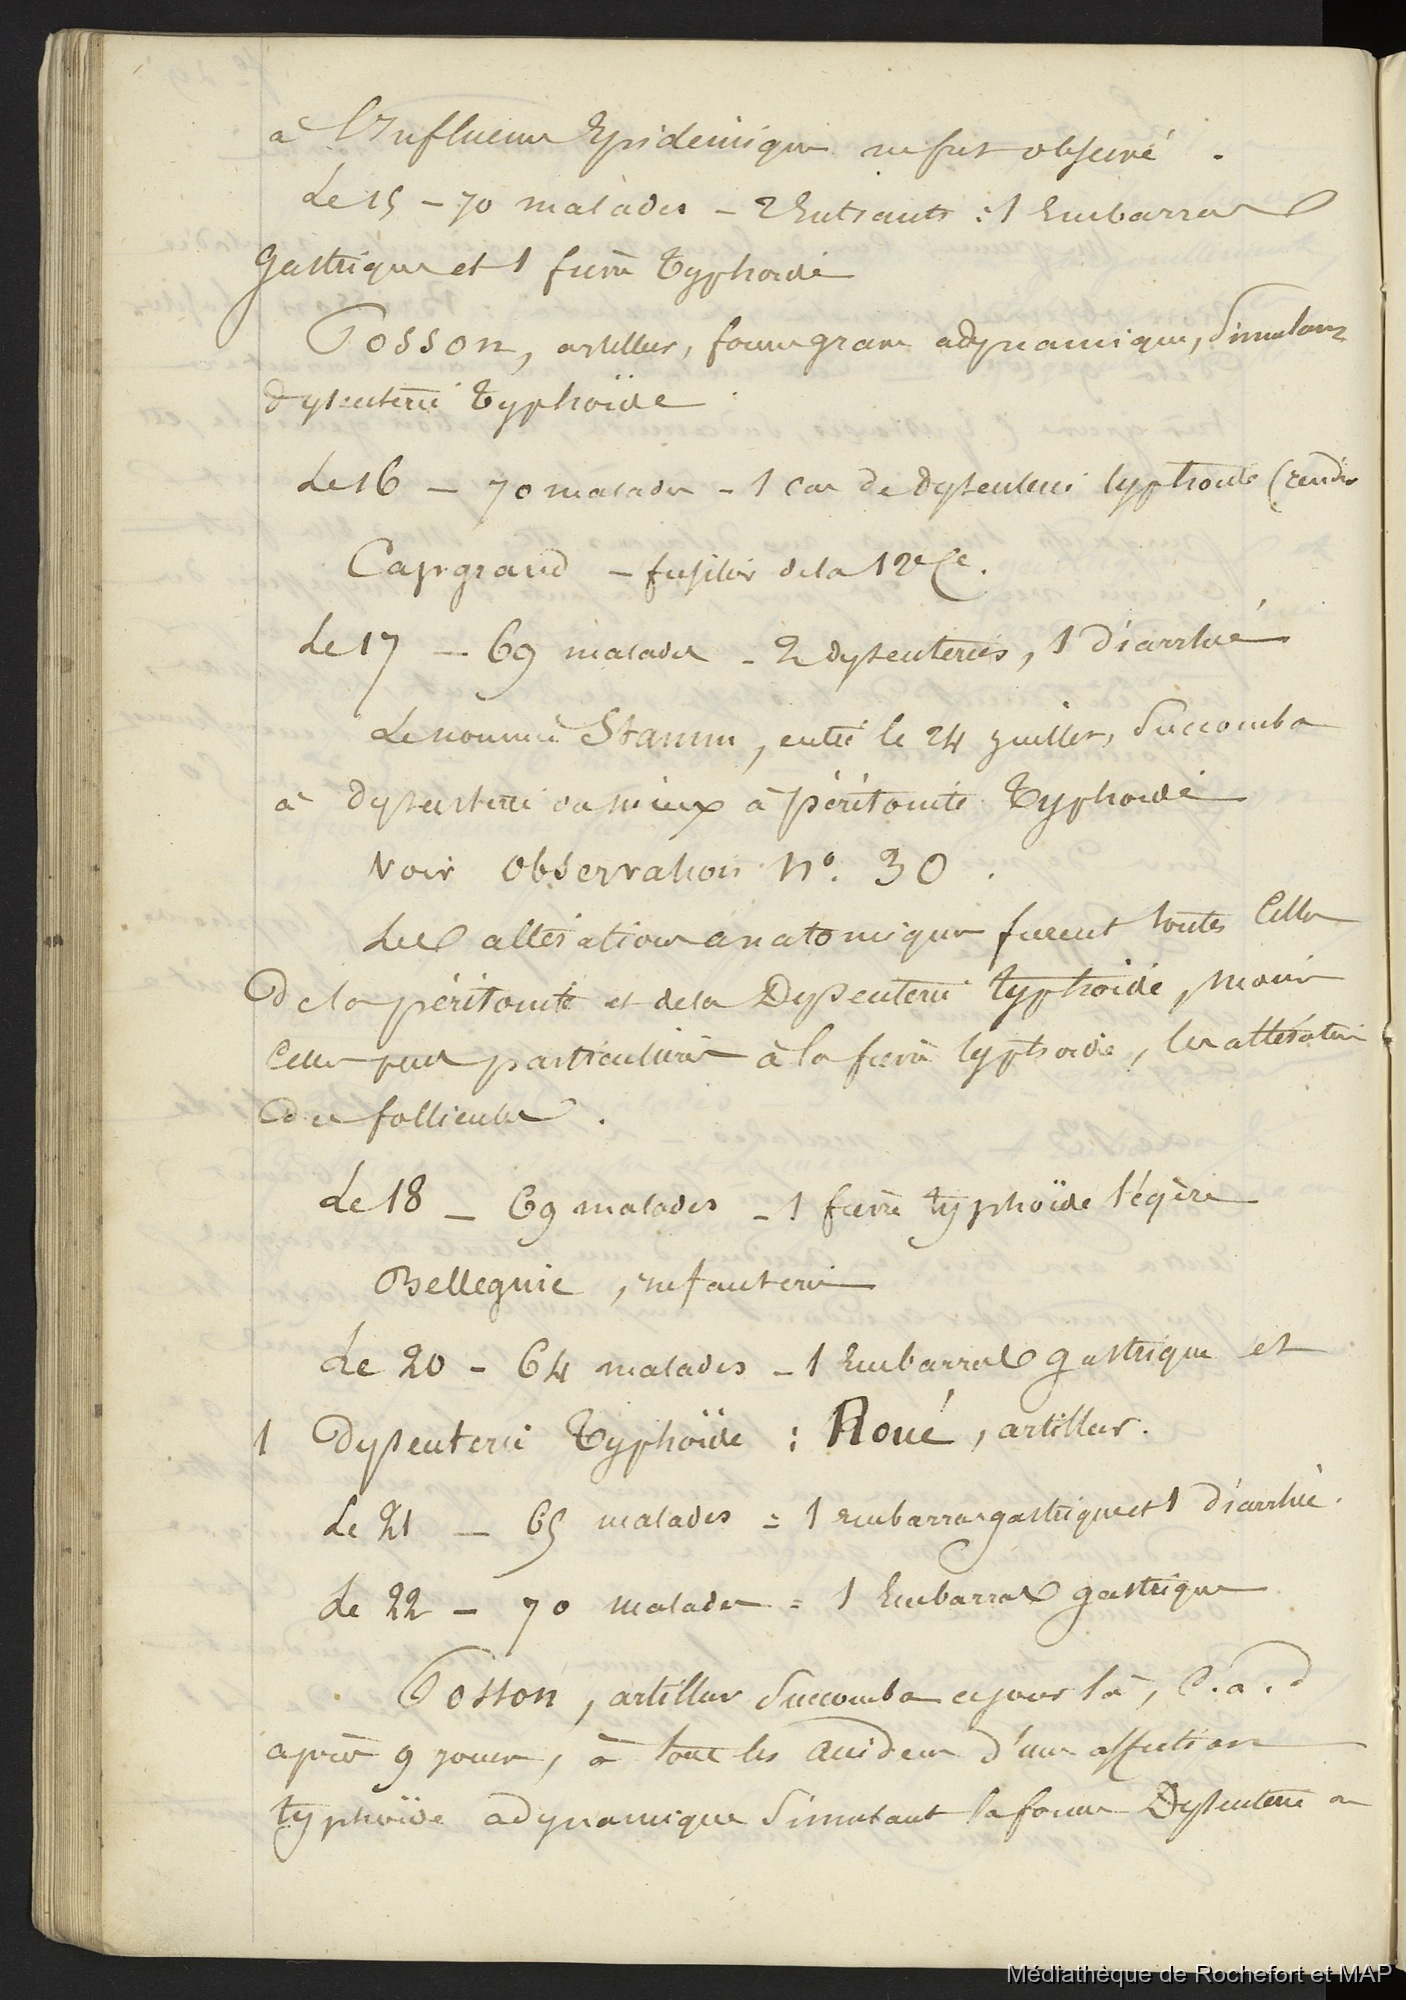 à l'Influence Epidémique ne fut observé.
Le 15 – 70 malades – 2 Entrants : 1 Embarras
Gastrique et 1 fièvre Typhoïde
Posson, artilleur, forme grave adynamique, simulant
dysenterie Typhoïde.
Le 16 – 70 malades – 1 cas de Dysenterie typhoïde
Capgrand – fusilier de la 12e Cie.
Le 17 – 69 malades – 2 dysenteries, 1 diarrhée
Le nommé Stamm, entré le 24 juillet, succomba
à dysenterie ou mieux à péritonite Typhoïde
Voir Observation No. 30.
Les altérations anatomiques furent toutes celles
De la péritonite et de la Dysenterie typhoïde, moins
celles plus particulières à la fièvre typhoïde, les altérations
des follicules.
Le 18 – 69 malades – 1 fièvre typhoïde légère
Belleguic, infanterie
Le 20 – 64 malades – 1 Embarras gastrique et
1 Dysenterie Typhoïde : Roué, artilleur.
Le 21 – 65 malades = 1 Embarras gastrique et 1 diarrhée.
Le 22 – 70 malades = 1 Embarras gastrique
Posson, artilleur succomba ce jour là, C.a.d
après 9 jours, à tous les accidens d'une affection
typhoïde adynamique simulant la forme Dysenterie a
Médiathèque de Rochefort et MAP